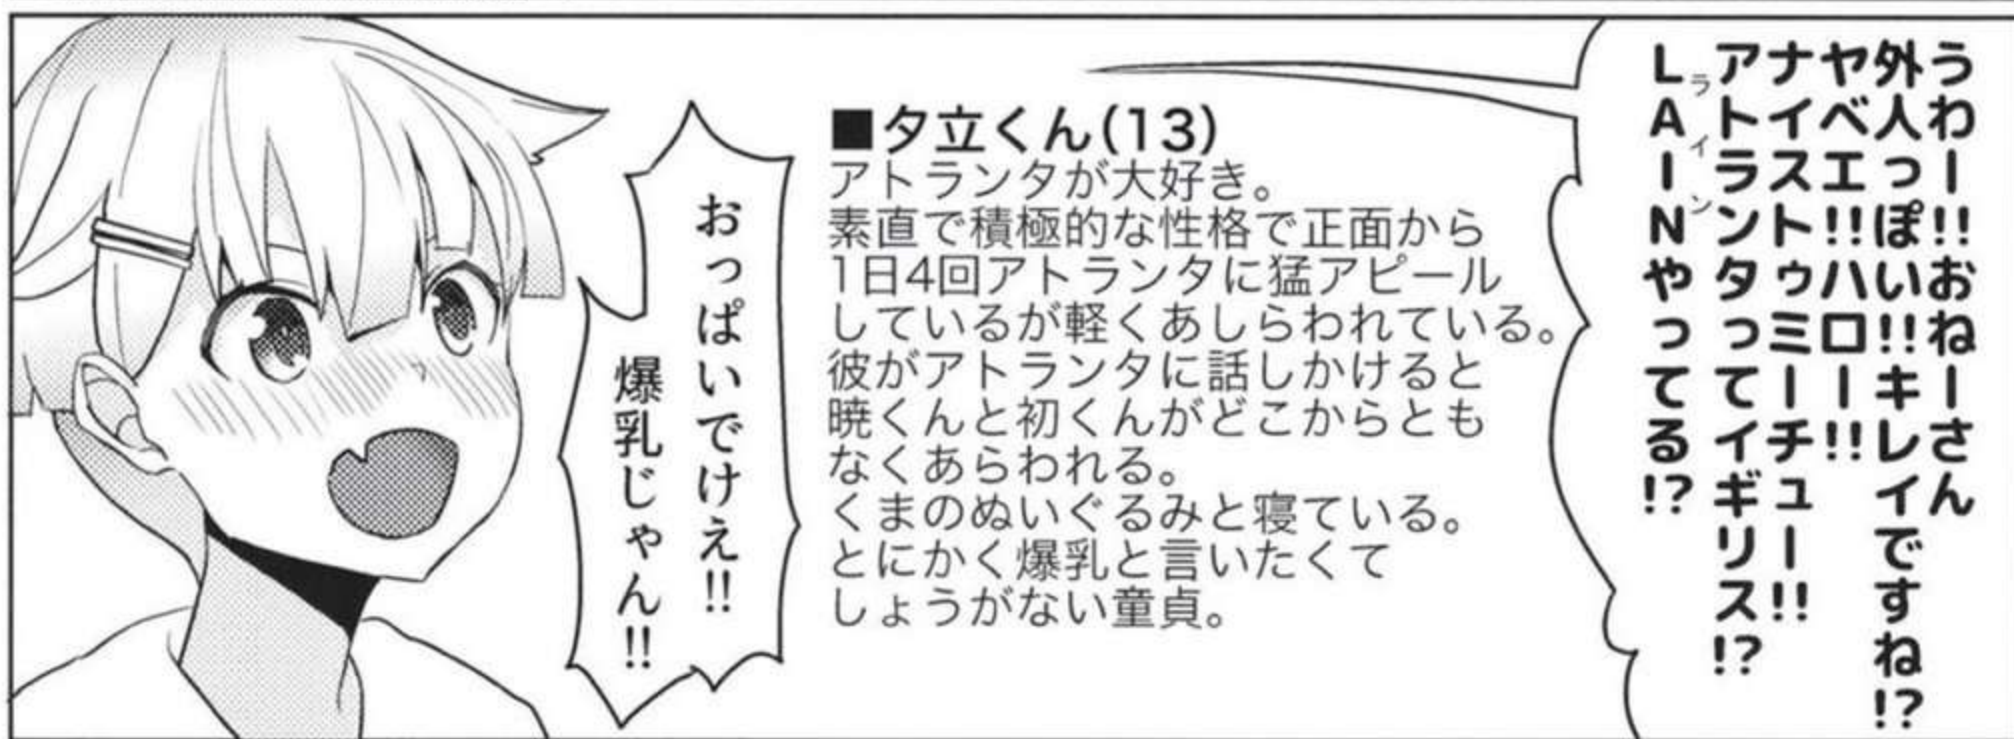 うわー!!おねーさん
外人っぽい!!キレイですね!?
ヤベエ!!ハロー!!
ナイストゥミーチュー!!
アトランタってイギリス!?
LAINやってる!?
ライン
■夕立くん(13)
アトランタが大好き。
素直で積極的な性格で正面から
1日4回アトランタに猛アピール
しているが軽くあしらわれている。
彼がアトランタに話しかけると
暁くんと初くんがどこからとも
なくあらわれる。
くまのぬいぐるみと寝ている。
とにかく爆乳と言いたくて
しょうがない童貞。
おっぱいでけえ!!
爆乳じゃん!!